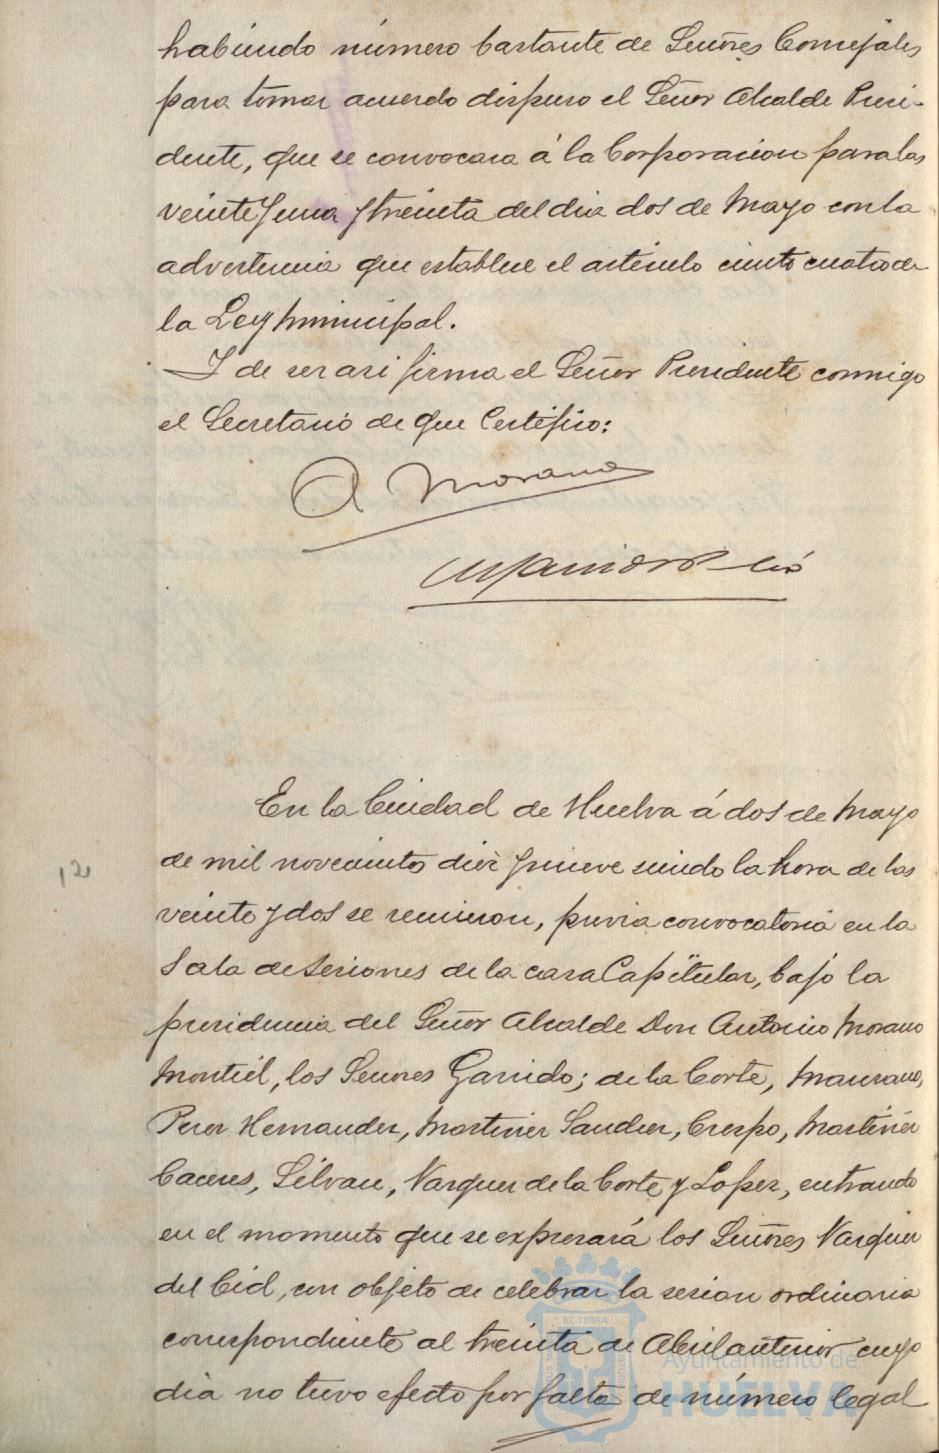 habiendo número bastante de Señores Concejales
para tomar acuerdo dispuso el Señor Alcalde Presi-
dente, que se convocara á la Corporacion para las
veinte y una y treinta del dia dos de Mayo con la
advertencia que establece el artículo ciento cuatro de
la Ley Municipal.
Y de ser asi firma el Señor Presidente conmigo
el Secretario de que Certifico:
A Morano
En la Ciudad de Huelva á dos de Mayo
12
de mil novecientos diez y nueve siendo la hora de las
veinte y dos se reunieron, previa convocatoria en la
Sala de Sesiones de la casa Capitular, bajo la
presidencia del Señor Alcalde Don Antonio Morano
Montiel, los Señores Garrido; de la Corte, Manzano,
Perez Hernandez, Martinez Sanchez, Crespo, Martinez
Caceres, Silvan, Vazquez de la Corte y Lopez, entrando
en el momento que se expresará los Señores Vazquez
del Cid, con objeto de celebrar la sesion ordinaria
correspondiente al treinta de Abril anterior cuyo
dia no tuvo efecto por falta de número legal
Ayuntamiento de
HUELVA